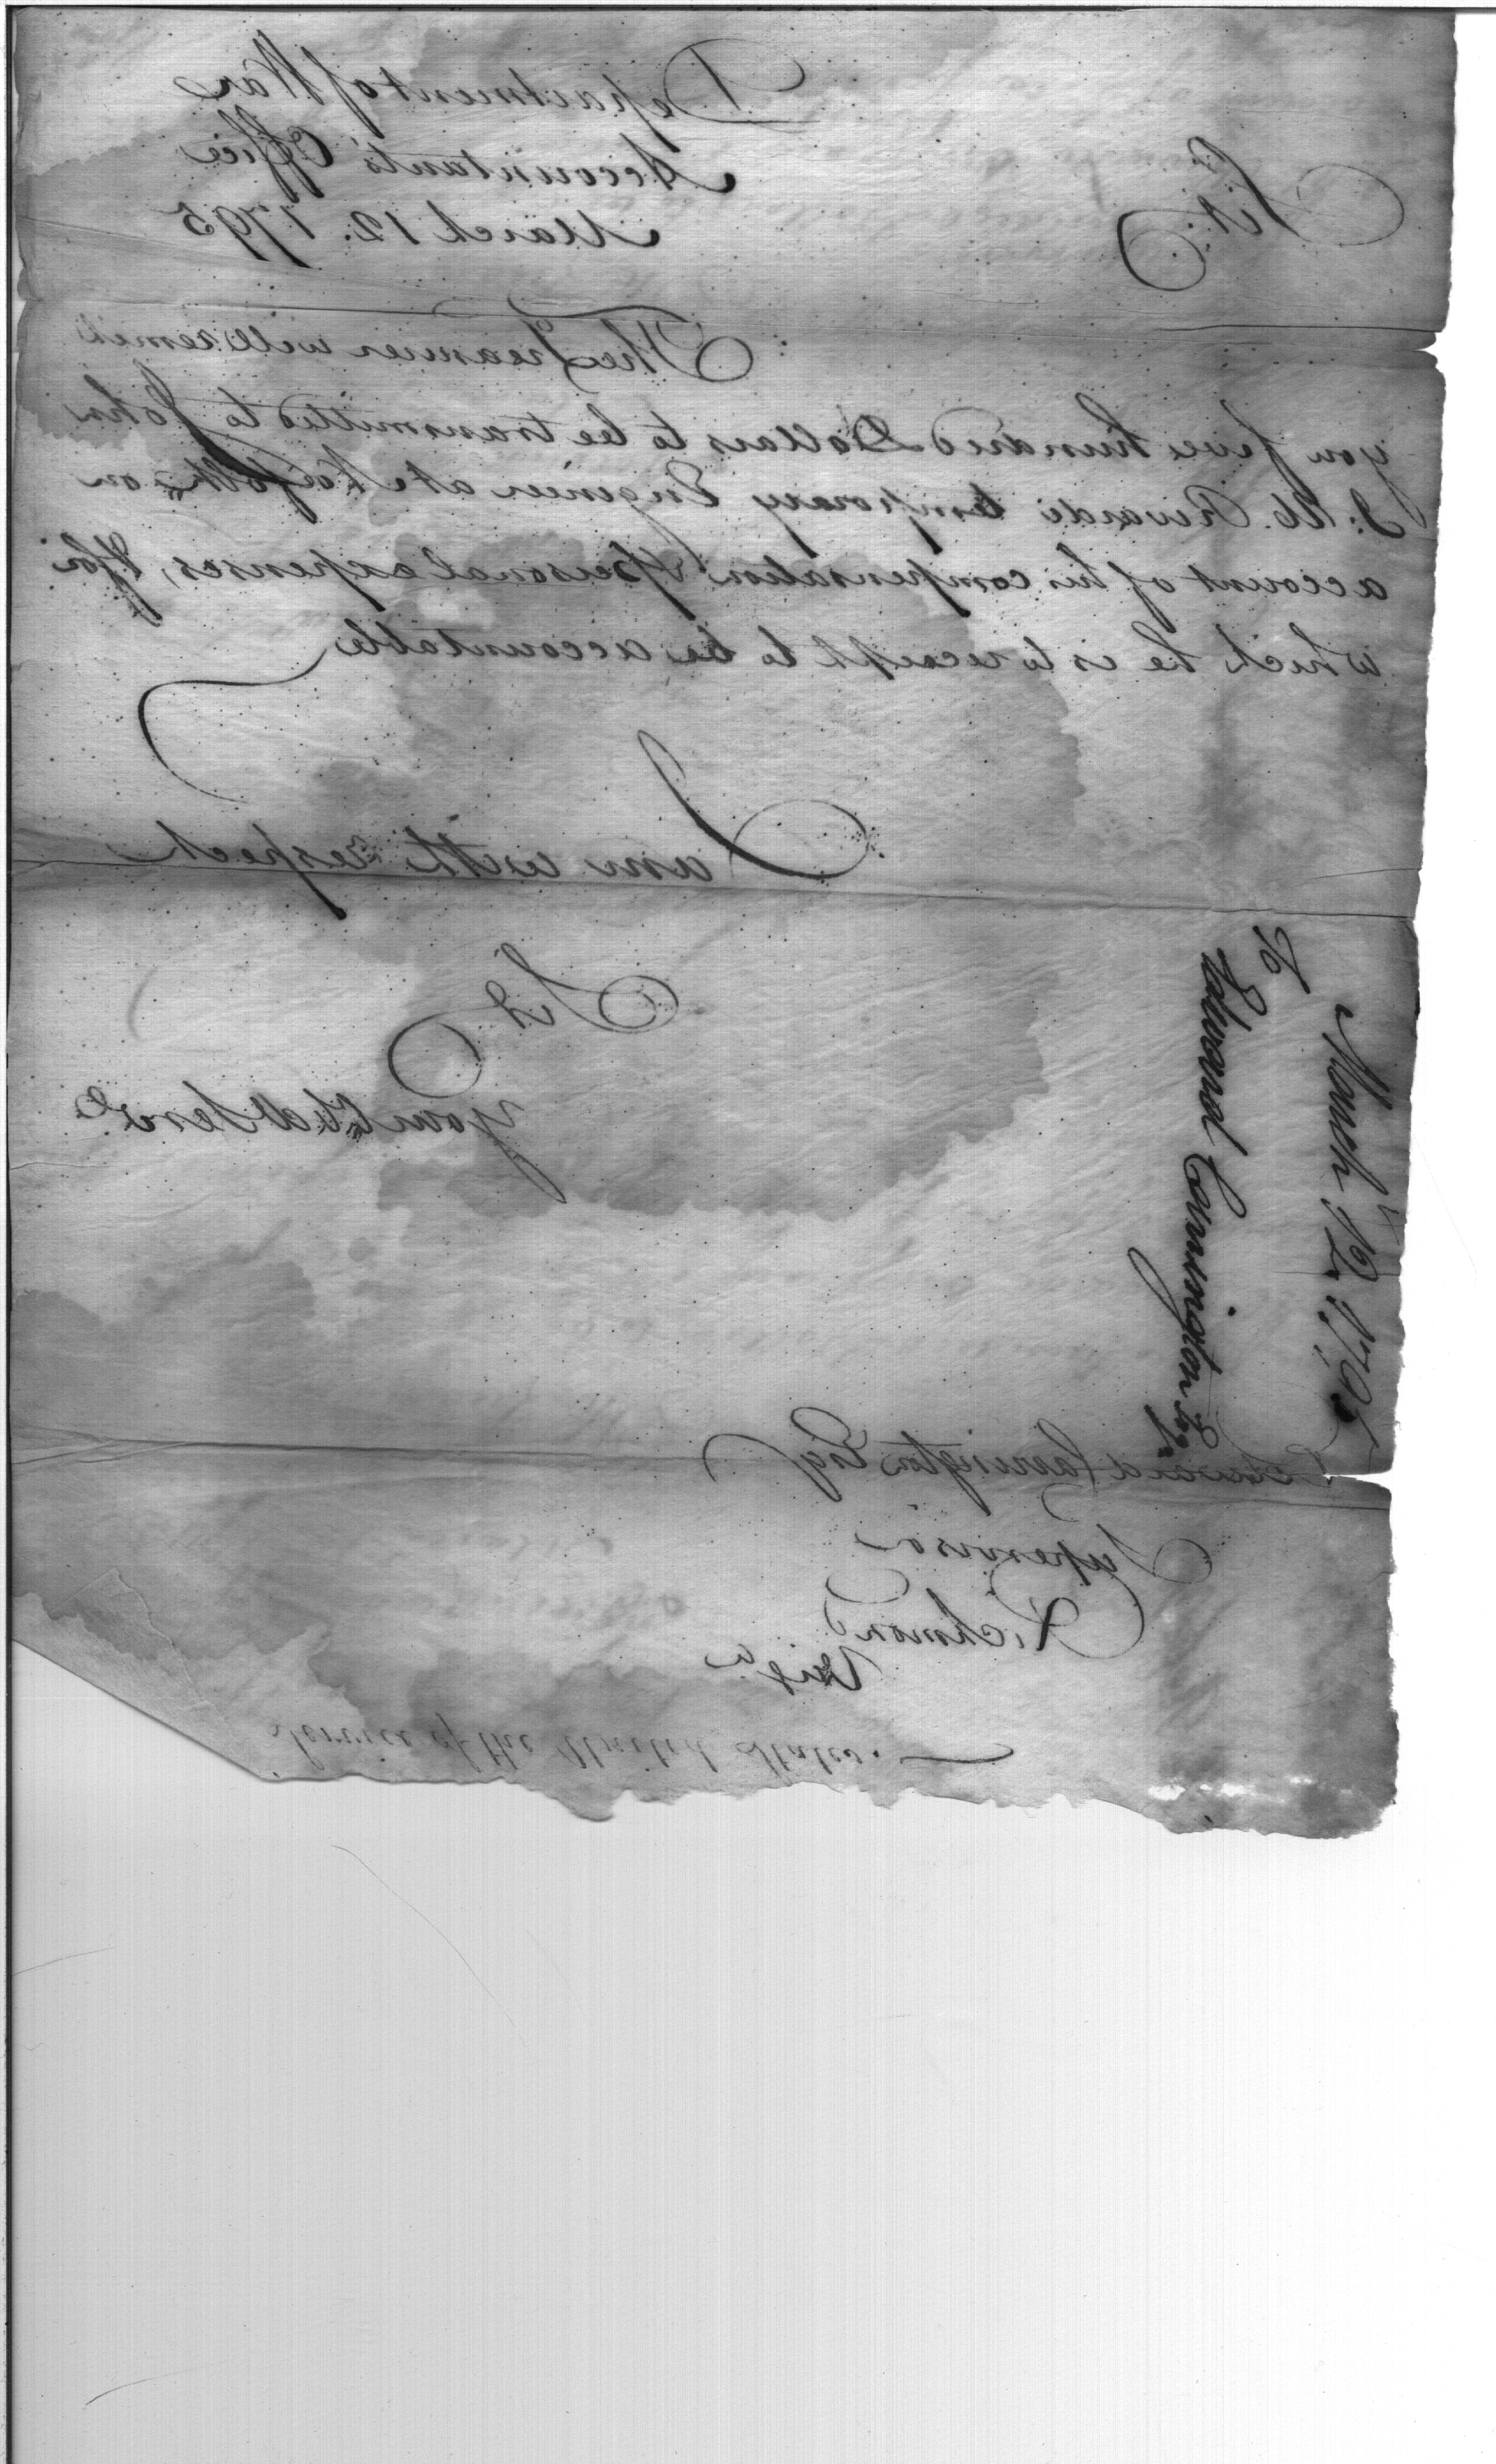 Department of War
Accountant's Office
March 12. 1795
Sir
The Treasurer will remit
you five hundred Dollars to be transmitted to John
J: U. Rivardi temporary Engineer at Norfolk on
account of his compensation & personal expenses, & for
which he is to receipt to be accountable
I
am with respect
Sir
Your Obdt Servt
Edward Carrington Esqr
Supervisor
Richmond
Virga
Service of the United States.
To
Edward Carrington Esqr
March 12 1795